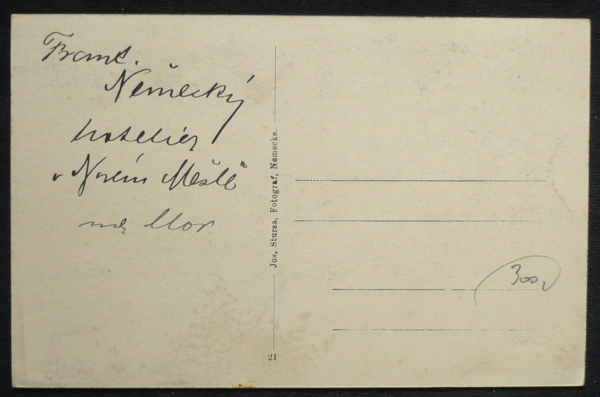 Frant.
Německý
hoteliér
v Novém Městě
na Mor
Jos. Stursa, Fotograf, Nemecke.
21
300